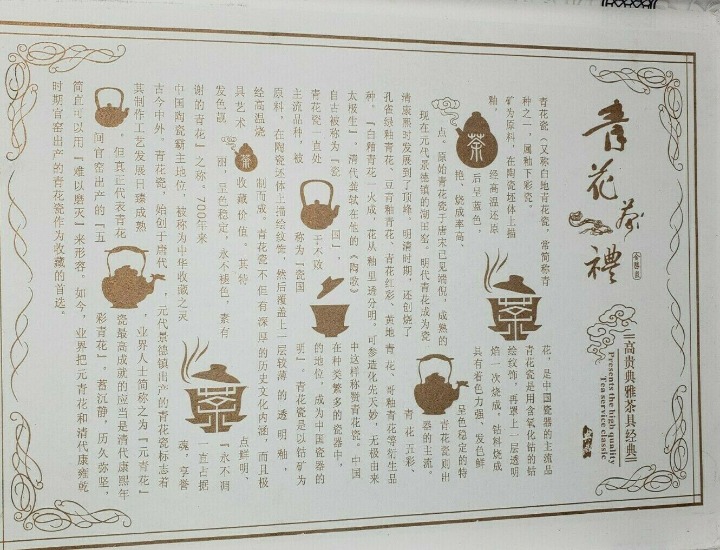 青花茶禮
高贵典雅茶具经典
Presents the high quality
Tea service classic
青花瓷(又称白地青花瓷,常简称青花,是中国瓷器的主流品
种之一,属釉下彩瓷。青花瓷是用含氧化钴的钴
矿为原料,在陶瓷坯体上描绘纹饰,再罩上一层透明
釉,经高温还原焰一次烧成。钴料烧成
后呈蓝色,具有着色力强、发色鲜
艳、烧成率高、呈色稳定的特
点。原始青花瓷于唐宋已见端倪,成熟的青花瓷则出
现在元代景德镇的湖田窑。明代青花成为瓷器的主流。
清康熙时发展到了顶峰。明清时期,还创烧了青花五彩、
孔雀绿釉青花、豆青釉青花、青花红彩、黄地青花、哥釉青花等衍生品
种。『白釉青花一火成,花从釉里透分明。可参造化先天妙,无极由来
太极生』,清代龚轼在他的《陶歌》中这样称赞青花瓷。中国
自古被称为『瓷国』,在种类繁多的瓷器中,
青花瓷一直处于不败的地位,成为中国瓷器的
主流品种,被称为『瓷国明』。青花瓷是以钴矿为
原料,在陶瓷坯体上描绘纹饰,然后覆盖上一层较薄的透明釉,
经高温烧制而成。青花瓷不但有深厚的历史文化内涵,而且极
具艺术收藏价值。其特点鲜明、
发色靓丽,呈色稳定,永不褪色,素有『永不凋
谢的青花』之称。700年来一直占据
中国陶瓷霸主地位,被称为中华收藏之灵魂,享誉
古今中外。青花瓷,始创于唐代,元代景德镇出产的青花瓷标志着
其制作工艺发展日臻成熟,业界人士简称之为『元青花』
,但真正代表青花瓷最高成就的应当是清代康熙年
间官窑出产的『五彩青花』。茗沉静,历久弥坚,
简直可以用『难以磨灭』来形容。如今,业界把元青花和清代康雍乾
时期官窑出产的青花瓷作为收藏的首选。
茶
茶
茶
茶